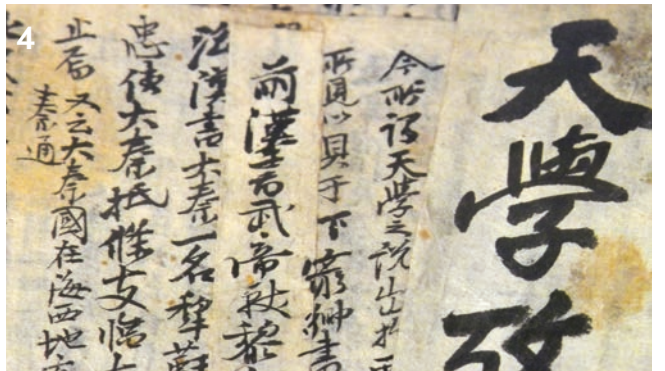 4
天學攷
今所謂天學之說出於
所見以具于下 窮神書
前漢書 武帝
漢書大秦一名犂
忠使大秦抵條支臨大
止焉 又云大秦國在海西地方
秦通